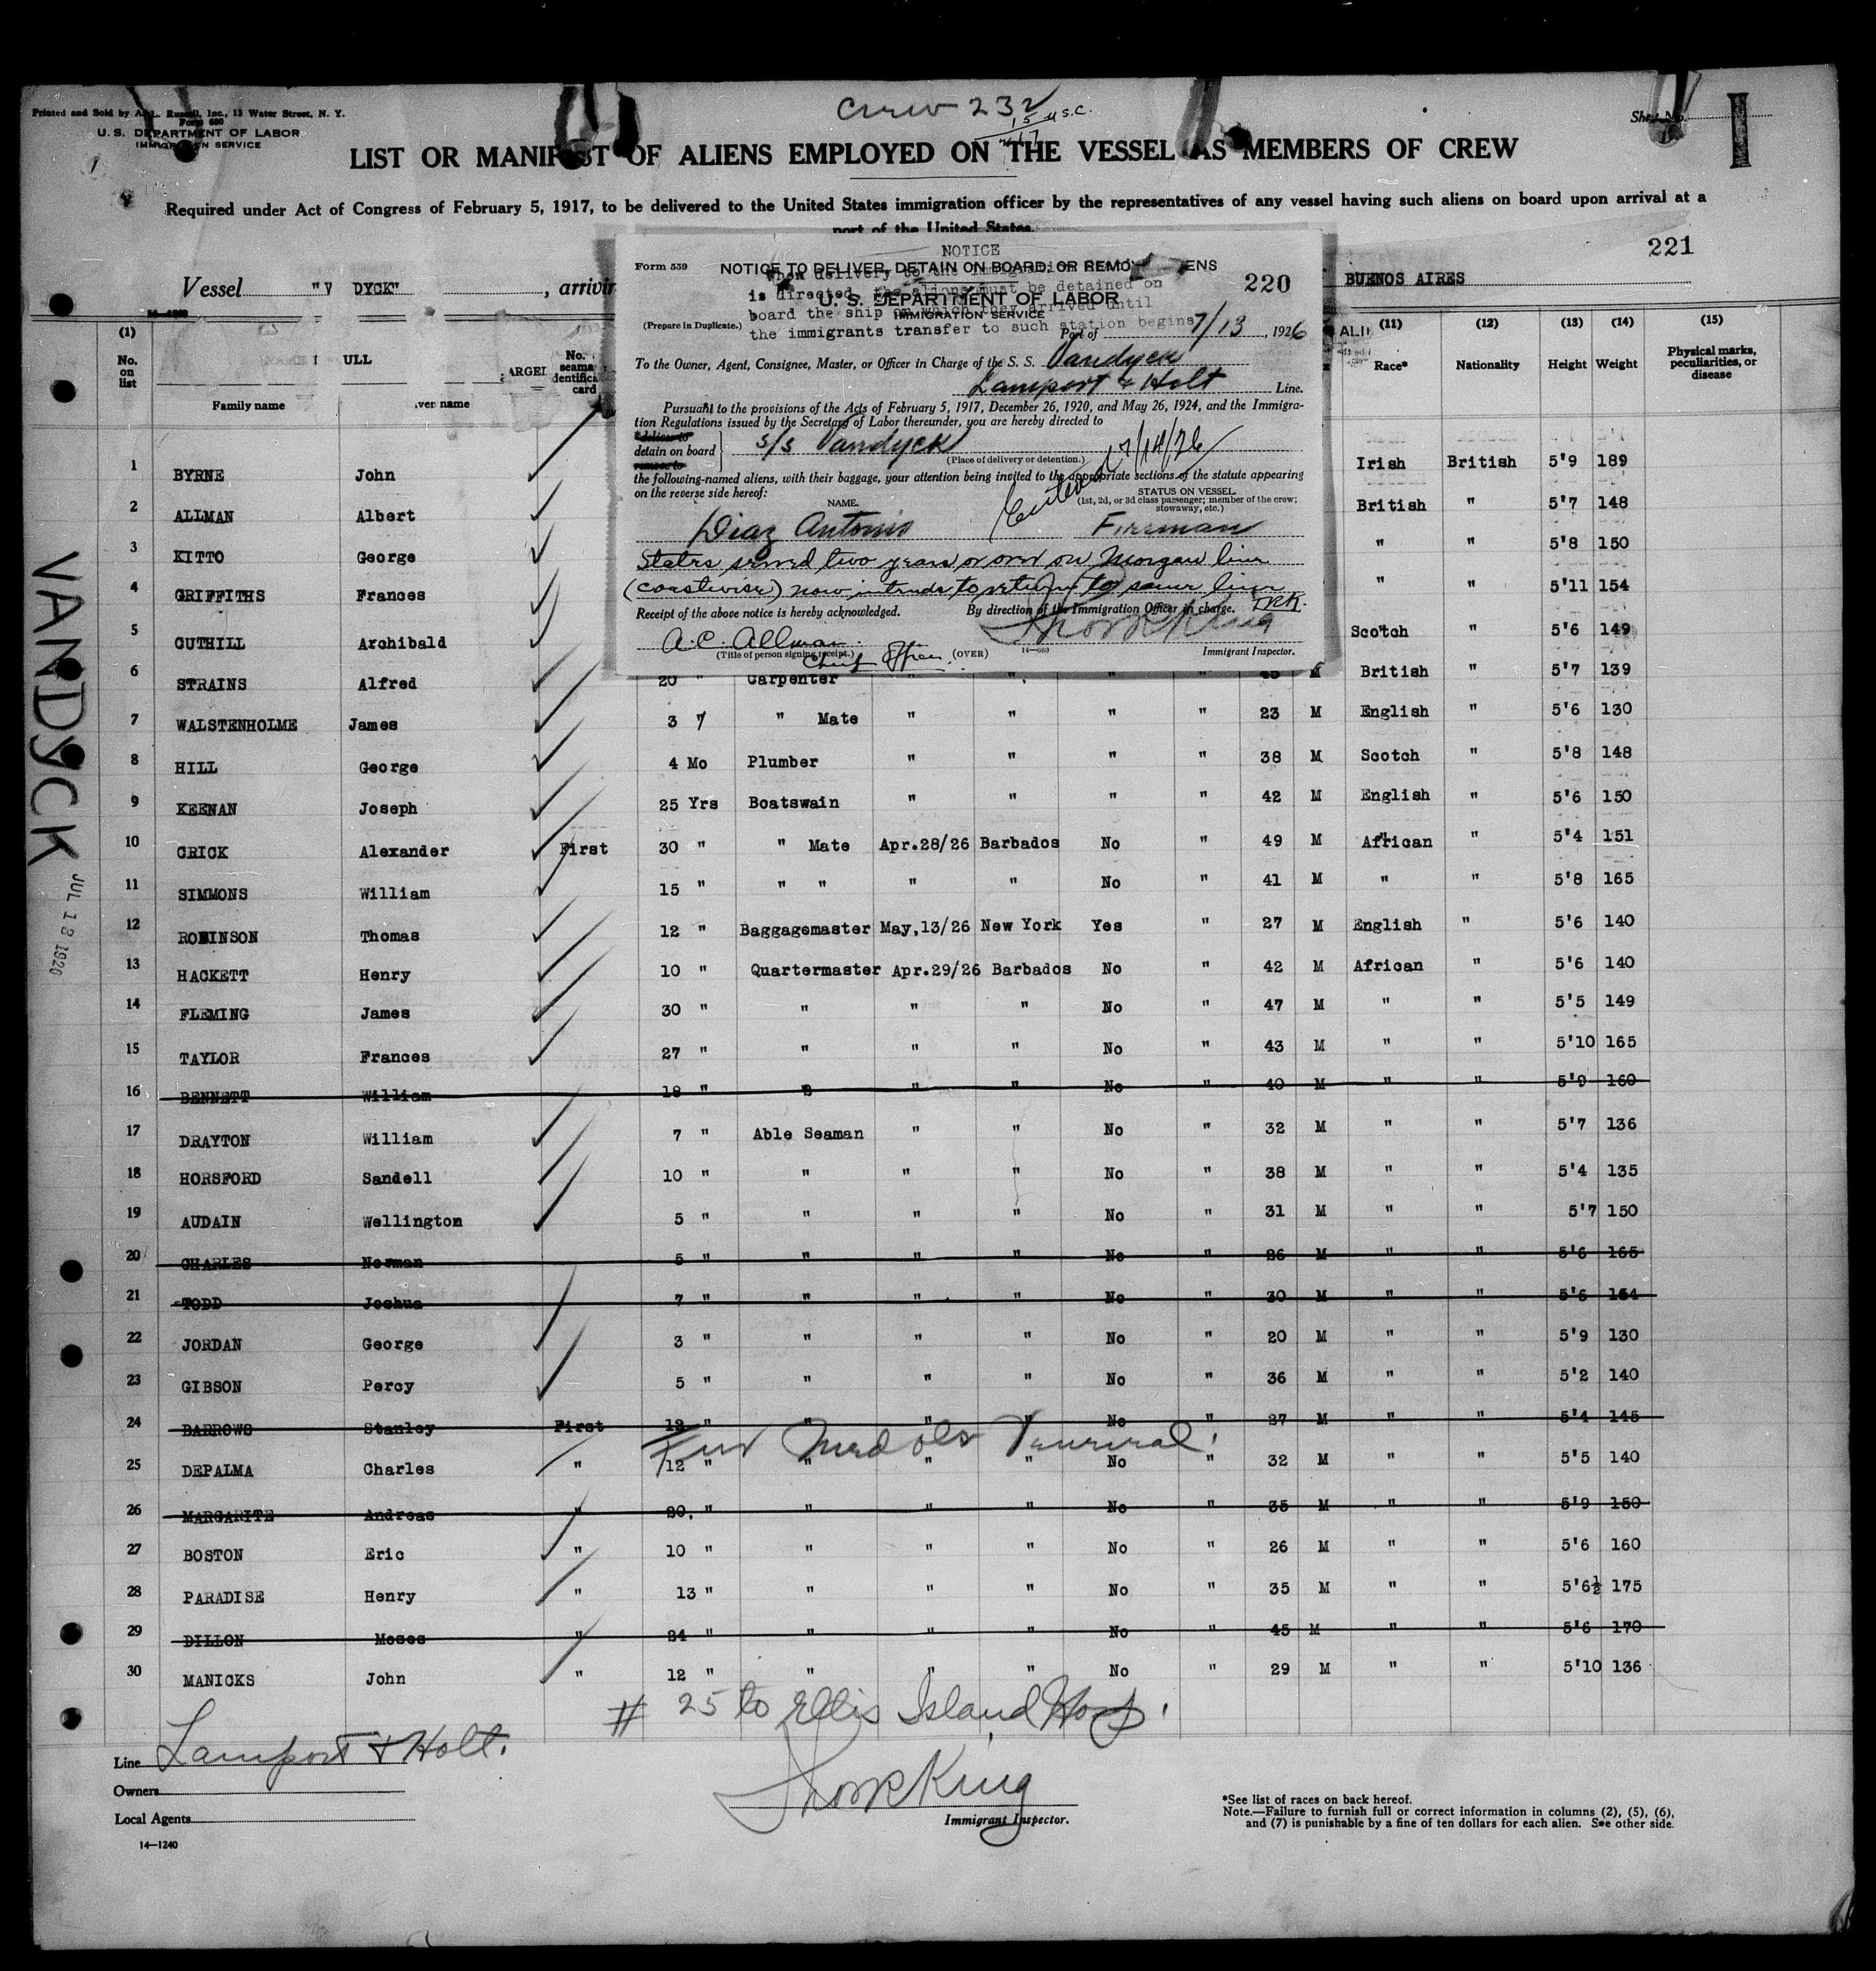 Crew 232
15 U.S.C.
217
Printed and Sold by A. L. Russell, Inc., 13 Water Street, N. Y.
Form 680
U. S. DEPARTMENT OF LABOR
IMMIGRATION SERVICE
Sheet No. 1
LIST OR MANIFEST OF ALIENS EMPLOYED ON THE VESSEL AS MEMBERS OF CREW
Required under Act of Congress of February 5, 1917, to be delivered to the United States immigration officer by the representatives of any vessel having such aliens on board upon arrival at a
port of the United States.
221
Vessel "V DYCK" , arrivin BUENOS AIRES
NOTICE
Form 559 NOTICE TO DELIVER, DETAIN ON BOARD, OR REMO ENS 220
When delivery to
is directed, the aliens must be detained on
U. S. DEPARTMENT OF LABOR
board the ship on which they arrived until
IMMIGRATION SERVICE
the immigrants transfer to such station begins
(Prepare in Duplicate.) Port of 7/13, 1926
To the Owner, Agent, Consignee, Master, or Officer in Charge of the S. S. Vandyck
Lamport & Holt Line.
Pursuant to the provisions of the Acts of February 5, 1917, December 26, 1920, and May 26, 1924, and the Immigra-
tion Regulations issued by the Secretary of Labor thereunder, you are hereby directed to
*deliver to
detain on board s/s Vandyck 7/14/26
remove to
(Place of delivery or detention.)
the following-named aliens, with their baggage, your attention being invited to the appropriate sections of the statute appearing
on the reverse side hereof:
NAME. STATUS ON VESSEL
(1st, 2d, or 3d class passenger; member of the crew; stowaway, etc.)
Diaz Antonio Fireman
States served two years or over on Morgan line
(coastwise) now intends to return to same line
TRK.
Receipt of the above notice is hereby acknowledged. By direction of the Immigration Officer in charge.
A. C. Allman King
(Title of person signing receipt.) Chief Officer (OVER) 14—660 Immigrant Inspector.
(1) (11) (12) (13) (14) (15)
No. on list ULL ARGEI No. seama dentifica card ALI Race* Nationality Height Weight Physical marks, peculiarities, or disease
Family name iven name
1 BYRNE John Irish British 5'9 189
2 ALLMAN Albert British " 5'7 148
3 KITTO George " " 5'8 150
4 GRIFFITHS Frances " " 5'11 154
5 GUTHILL Archibald Scotch " 5'6 149
6 STRAINS Alfred 20 " Carpenter " " " " M British " 5'7 139
7 WALSTENHOLME James 3 7 " Mate " " " " 23 M English " 5'6 130
8 HILL George 4 Mo Plumber " " " " 38 M Scotch " 5'8 148
9 KEENAN Joseph 25 Yrs Boatswain " " " " 42 M English " 5'6 150
10 CRICK Alexander First 30 " " Mate Apr.28/26 Barbados No " 49 M African " 5'4 151
11 SIMMONS William 15 " " " " " No " 41 M " " 5'8 165
12 ROBINSON Thomas 12 " Baggagemaster May,13/26 New York Yes " 27 M English " 5'6 140
13 HACKETT Henry 10 " Quartermaster Apr.29/26 Barbados No " 42 M African " 5'6 140
14 FLEMING James 30 " " " " No " 47 M " " 5'5 149
15 TAYLOR Frances 27 " " " " No " 43 M " " 5'10 165
16 BENNETT William 18 " " " " No " 40 M " " 5'9 160
17 DRAYTON William 7 " Able Seaman " " No " 32 M " " 5'7 136
18 HORSFORD Sandell 10 " " " " No " 38 M " " 5'4 135
19 AUDAIN Wellington 5 " " " " No " 31 M " " 5'7 150
20 CHARLES Norman 5 " " " " No " 26 M " " 5'6 165
21 TODD Joshua 7 " " " " No " 30 M " " 5'6 154
22 JORDAN George 3 " " " " No " 20 M " " 5'9 130
23 GIBSON Percy 5 " " " " No " 36 M " " 5'2 140
24 BARROWS Stanley First 12 " " " " No " 37 M " " 5'4 145
25 DEPALMA Charles " 12 " " " " No " 32 M " " 5'5 140
26 MARGARITE Andreas " 20. " " " " No " 35 M " " 5'9 150
27 BOSTON Eric " 10 " " " " No " 26 M " " 5'6 160
28 PARADISE Henry " 13 " " " " No " 35 M " " 5'6½ 175
29 DILLON Moses " 24 " " " " No " 45 M " " 5'6 170
30 MANICKS John " 12 " " " " No " 29 M " " 5'10 136
# 25 to Ellis Island Hosp.
Line Lamport & Holt.
Owners
Local Agents
14—1240
King
Immigrant Inspector.
*See list of races on back hereof.
Note.—Failure to furnish full or correct information in columns (2), (5), (6),
and (7) is punishable by a fine of ten dollars for each alien. See other side.
VANDYCK
JUL 13 1926